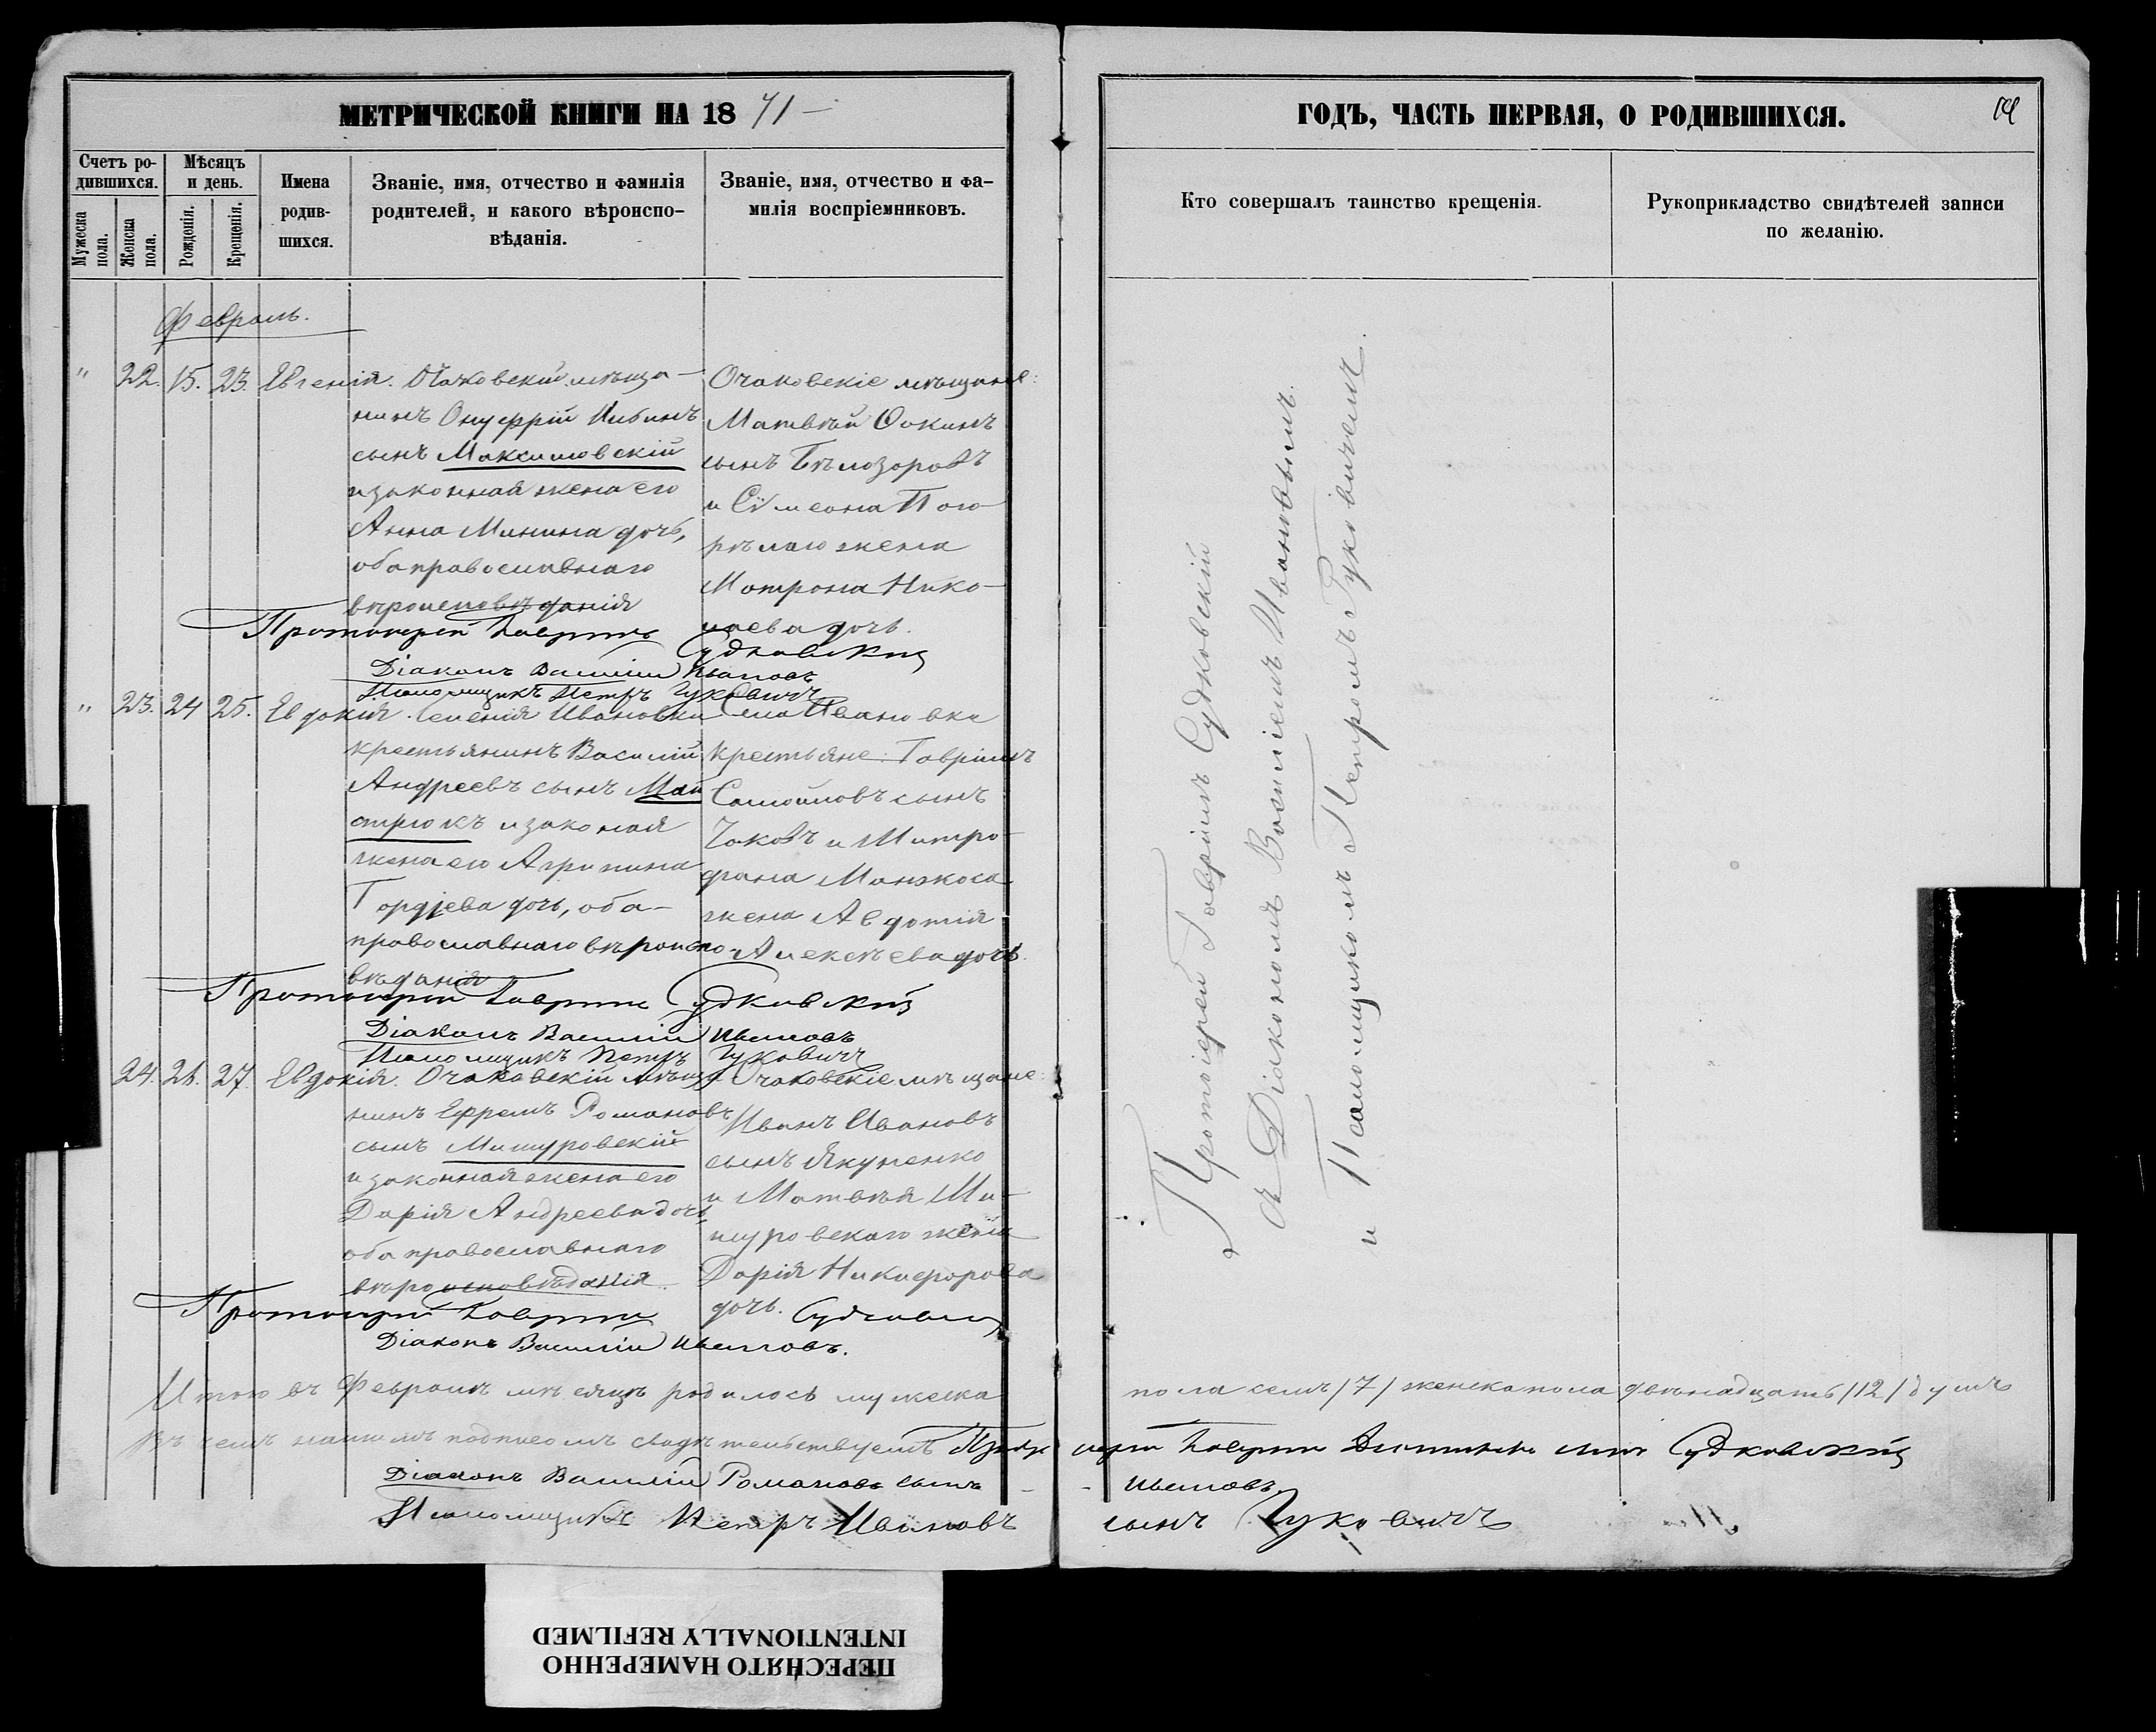 МЕТРИЧЕСКОЙ КНИГИ НА 1871
Счетъ ро-
дившихся.
Мужеска
пола.
Женска
пола.
Мѣсяцъ
и день.
Рожденія.
Крещенія.
Имена
родив-
шихся.
Званіе, имя, отчество и фамилія
родителей, и какого вѣроиспо-
вѣданія.
Званіе, имя, отчество и фа-
милія воспріемниковъ.
Февраль.
" 22. 15. 23. Евгенія.
Очаковскій мѣща-
нинъ Онуфрій
сынъ Максимовскій
и законная жена его
Анна Минина дочь,
оба православнаго
вѣроисповѣданія
Очаковскіе мѣщане:
Матвѣй Фокинъ
сынъ Бѣлозоровъ
и Сѵмеона Пого-
рѣлаго жена
Матрона Нико-
лаева дочь.
Протоіерей Гавріилъ Судковскій
Діаконъ Василій Ивановъ
Псаломщикъ Петръ Гуковичъ
" 23. 24 25. Евдокія.
Селенія Ивановки
крестьянинъ Василій
Андреевъ сынъ Май
стрюкъ и законая
жена его Агрипина
Гордіева дочь, оба-
православнаго вѣроиспо-
вѣданія
Села Ивановки
крестьяне: Гавріилъ
Самойловъ сынъ
и Митро-
фана Манжоса
жена Авдотія
Алексѣева дочь.
Протоіерей Гавріилъ Судковскій
Діаконъ Василій Ивановъ
Псаломщикъ Петръ Гуковичъ
24. 26. 27. Евдокія.
Очаковскій мѣща-
нинъ Ефремъ Романовъ
сынъ Мишуровскій
и законная жена его
Дарія Андреева дочь,
оба православнаго
вѣроисповѣданія.
Очаковскіе мѣщане:
Иванъ Ивановъ
сынъ Якуненко
и Матвѣя Ми-
шуровскаго жена
Дарія Никифорова
дочь.
Протоіерей Гавріилъ Судковскій
Діаконъ Василій Ивановъ.
Итого въ Февралѣ мѣсяцѣ родилось мужеска
Въ чемъ нашимъ подписомъ свидѣтельствуемъ Прото
Діаконъ Василій Романовъ сынъ
Псаломщикъ Петръ Ивановъ
ГОДЪ, ЧАСТЬ ПЕРВАЯ, О РОДИВШИХСЯ.
Кто совершалъ таинство крещенія.
Рукоприкладство свидѣтелей записи
по желанію.
Протоіерей Гавріилъ Судковскій
съ Діакономъ Василіемъ Ивановымъ.
и Псаломщикомъ Петромъ Гуковичемъ.
пола семъ /7/ женска пола двѣнадцать /12/ душъ
іерей Гавріилъ сынъ Судковскій
Ивановъ.
сынъ Гуковичъ
ПЕРЕСНЯТО НАМЕРЕННО
INTENTIONALLY REFILMED